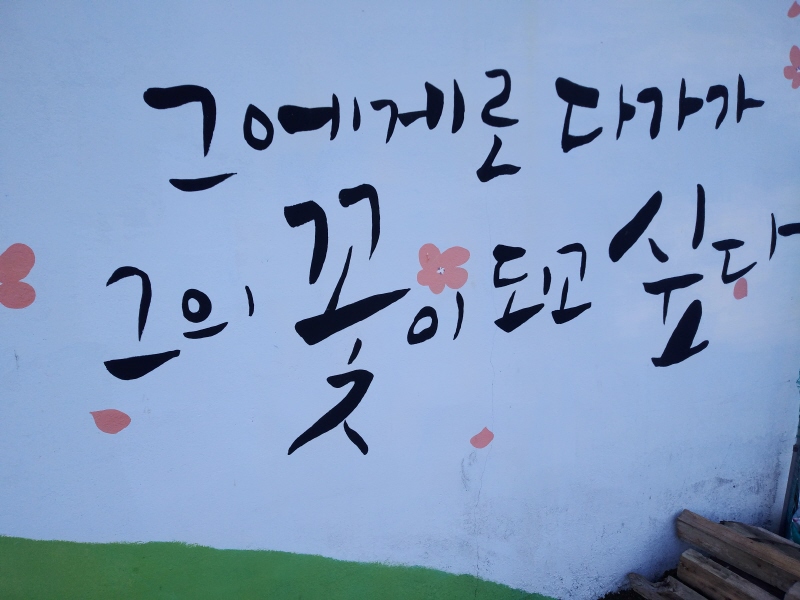 그에게로 다가가
그의 꽃이 되고 싶다